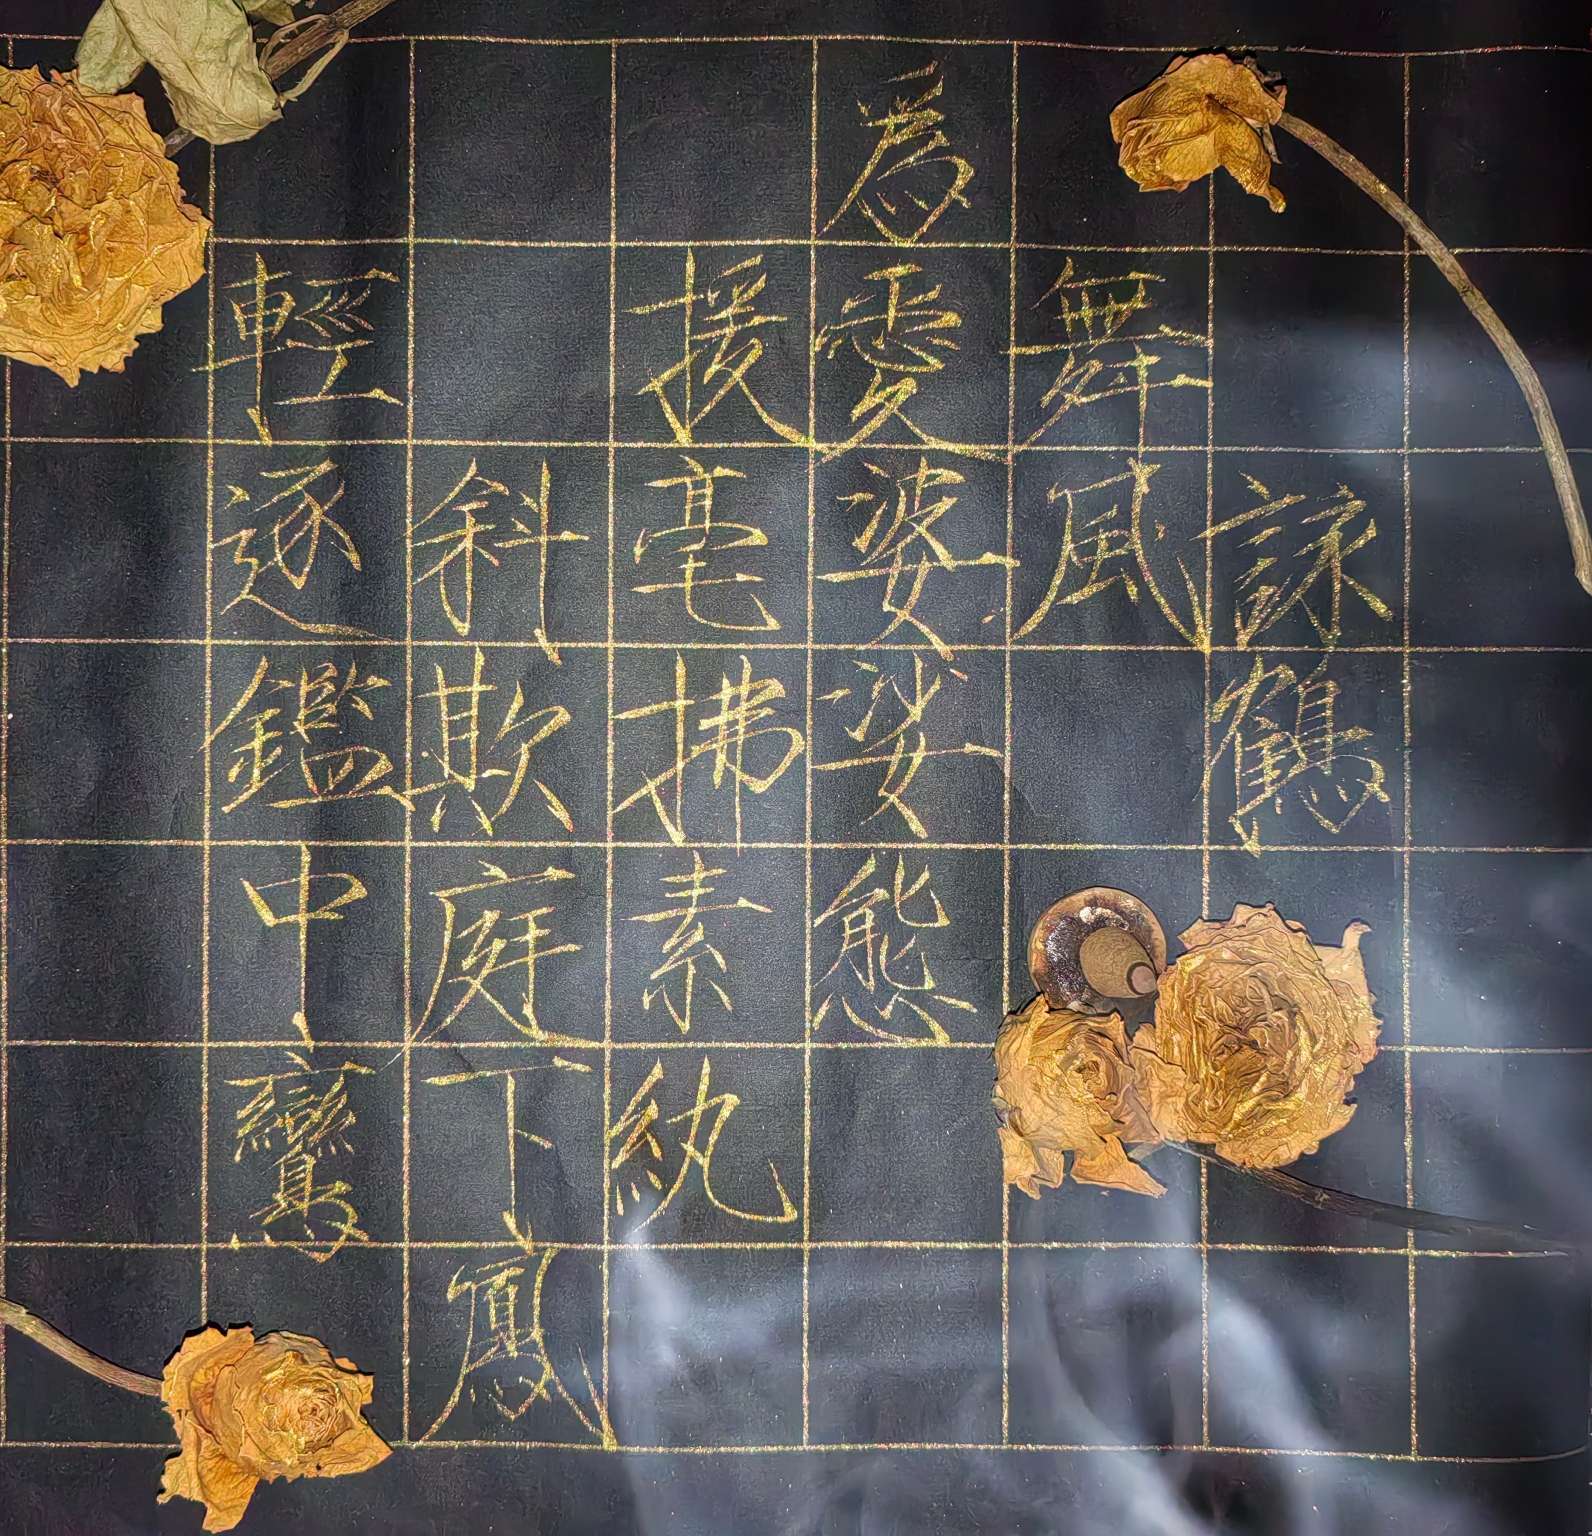 詠鶴
舞風
為愛婆娑態
援毫拂素紈
斜欺庭下鳳
輕逐鑑中鸞